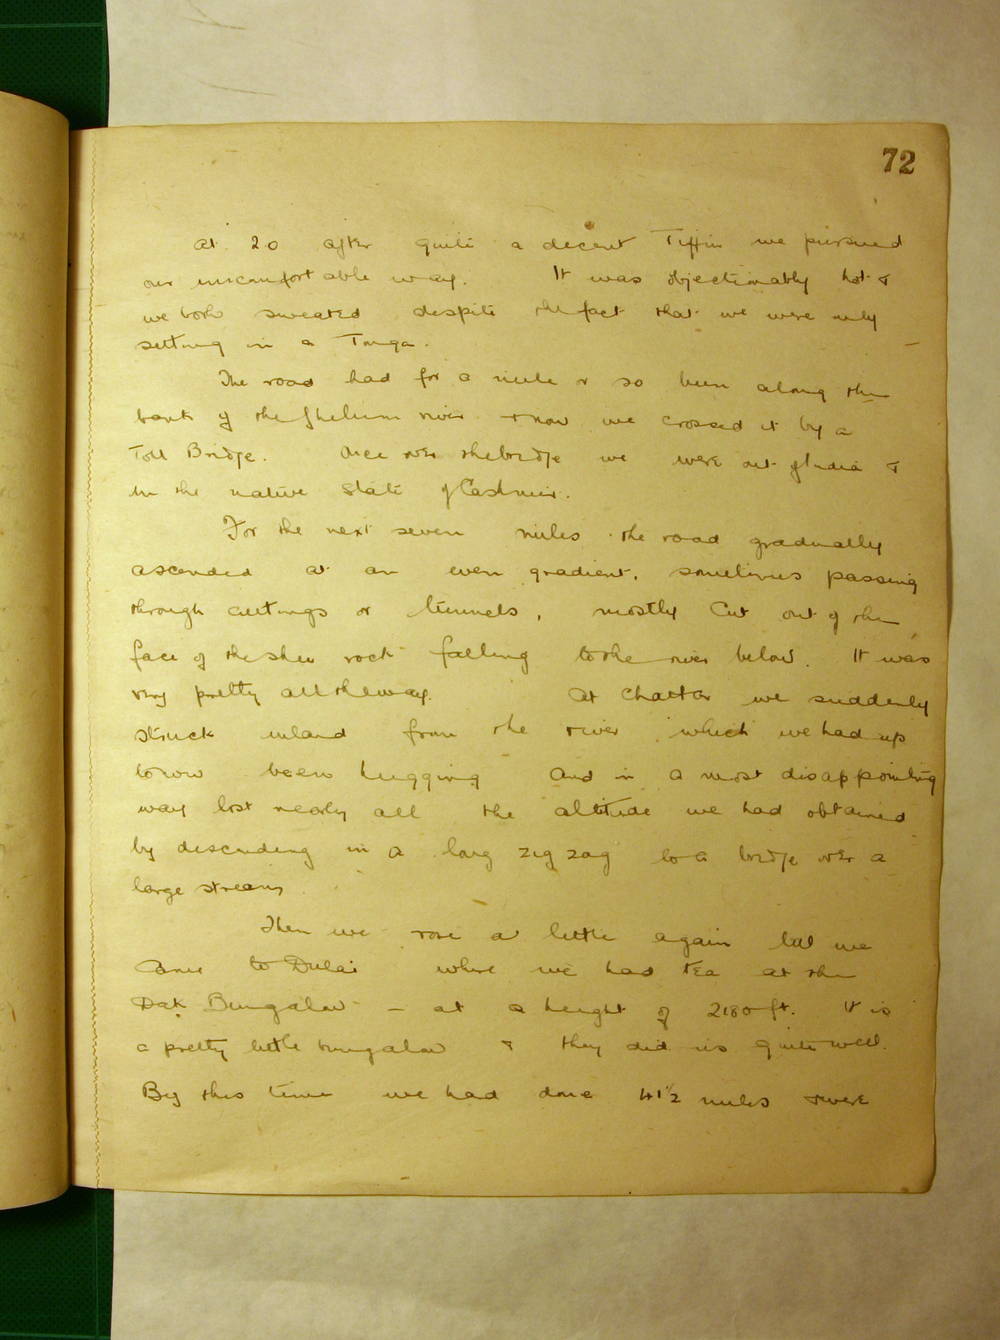 72
at 20 after quite a decent Tiffin we pursued
our uncomfortable way. It was objectionably hot &
we both sweated despite the fact that we were only
setting in a Tonga.
The road had for a mile or so been along the
bank of the Jhelum river & now we crossed it by a
Toll Bridge. Once over the bridge we were out of India &
in the native State of Cashmir.
For the next seven miles the road gradually
ascended at an even gradient, sometimes passing
through cuttings or tunnels, mostly cut out of the
face of the sheer rock falling to the river below. It was
very pretty all the way. At Chattar we suddenly
struck inland from the river which we had up
to now been hugging and in a most disappointing
way lost nearly all the altitude we had obtained
by descending in a long zig zag to a bridge over a
large stream
Then we rose a little again till we
came to Dulai where we had tea at the
Dak Bungalow - at a height of 2180 ft. It is
a pretty little bungalow & they did us quite well.
By this time we had done 41½ miles & were